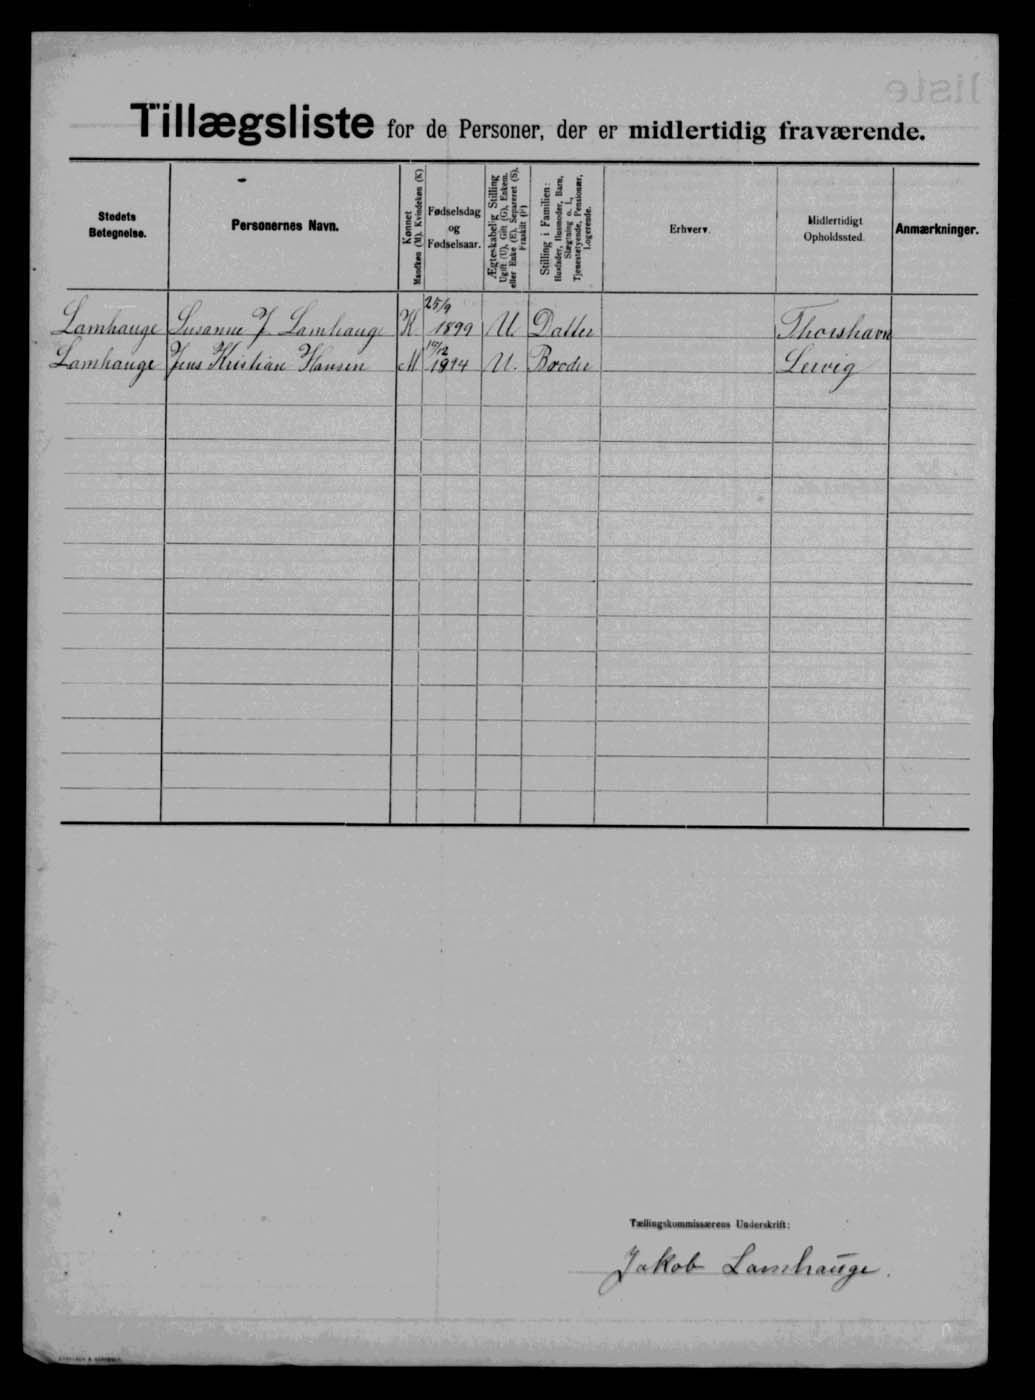 Tillægsliste for de Personer, der er midlertidig fraværende.
Stedets Betegnelse.
Personernes Navn.
Kønnet
Mandkøn (M). Kvindekøn (K)
Fødselsdag
og
Fødselsaar.
Ægteskabelig Stilling
Ugift (U), Gift (G), Enkem.
eller Enke (E), Separeret (S),
Fraskilt (F)
Stilling i Familien:
Husfader, Husmoder, Barn,
Slægtning o. l.,
Tjenestetyende, Pensionær,
Logerende.
Erhverv.
Midlertidigt
Opholdssted.
Anmærkninger.
Lamhauge Susanne J. Lamhauge K 25/9 1899 U. Datter Thorshavn
Lamhauge Jens Kristian Hansen M 1894 U. Broder Lervig
Tællingskommissærens Underskrift:
Jakob Lamhauge.